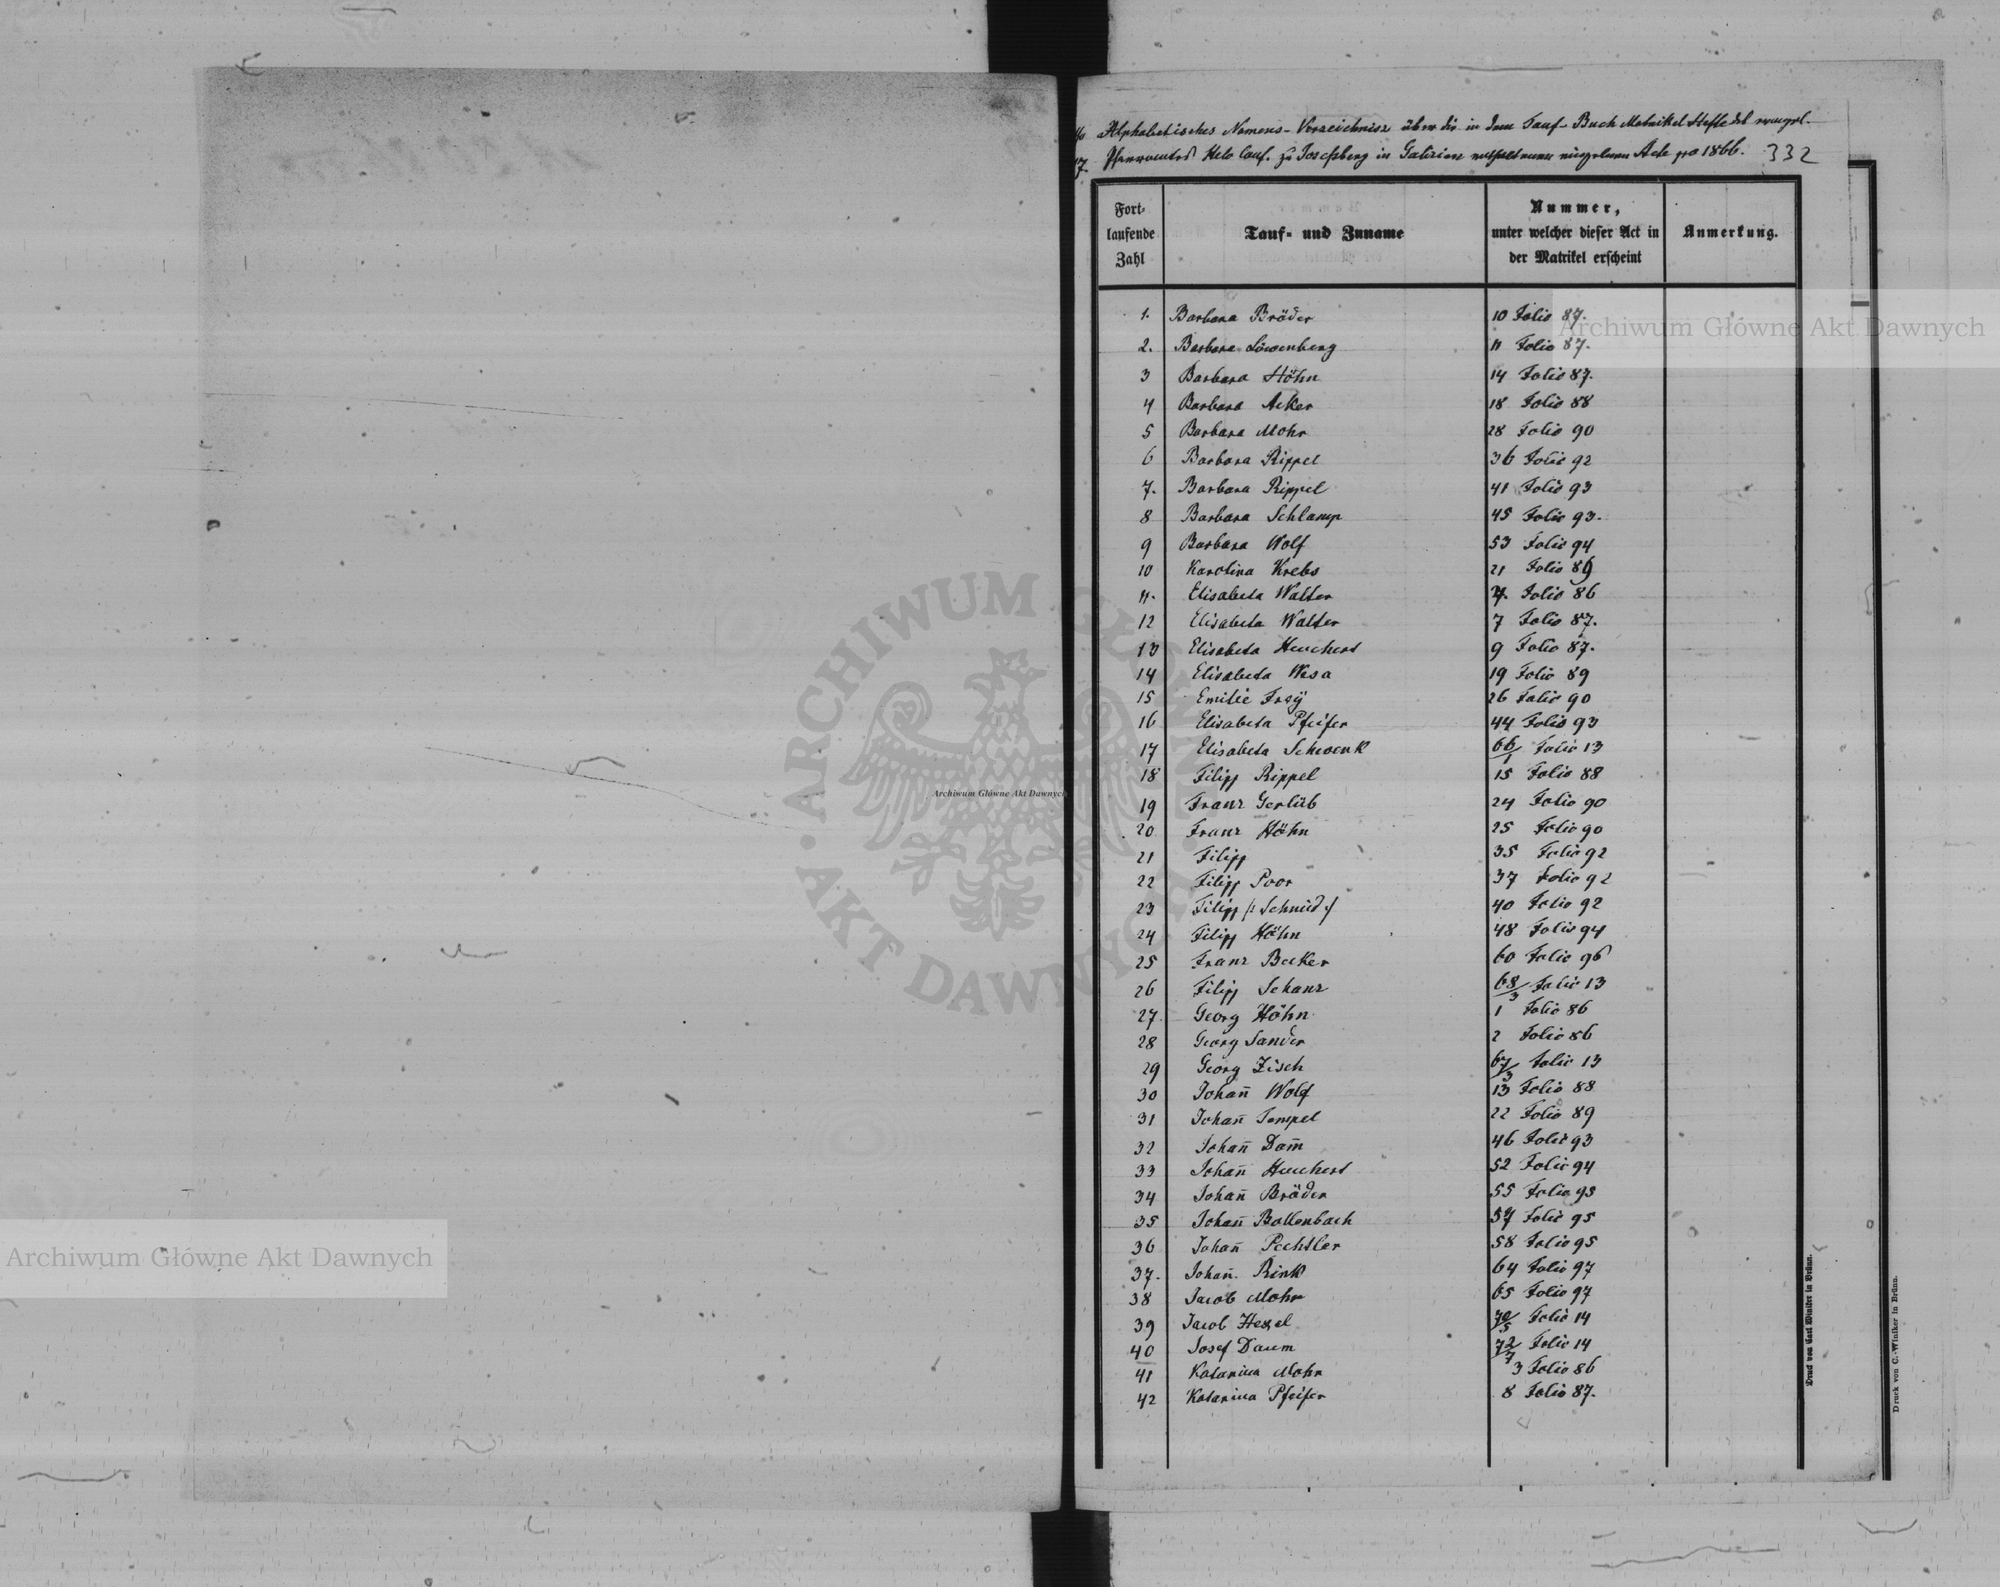 Alphabetisches Namens-Verzeichniss über die in dem Tauf-Buch Matrikel Hefte des evangel.
Pfarramtes Helv. Conf. zu Josefsberg in Galizien enthaltenen einzelnen Acte pro 1866. 332
Fortlaufende Zahl | Tauf- und Zuname | Nummer, unter welcher dieser Act in der Matrikel erscheint | Anmerkung.
1. Barbara Bräder 10 Folio 87.
2. Barbara Löwenberg 11 Folio 87.
3 Barbara Höhn 14 Folio 87.
4 Barbara Acker 18 Folio 88
5 Barbara Mohr 28 Folio 90
6 Barbara Rippel 36 Folio 92
7. Barbara Rippel 41 Folio 93
8 Barbara Schlamp 45 Folio 93.
9 Barbara Wolf 53 Folio 94
10 Karolina Krebs 21 Folio 89
11. Elisabeta Walter 4. Folio 86
12 Elisabeta Walter 7 Folio 87.
13 Elisabeta Heuchert 9 Folio 87.
14 Elisabeta Wesa 19 Folio 89
15 Emilie Freÿ 26 Folio 90
16 Elisabeta Pfeifer 44 Folio 93
17 Elisabeta Schwenk 66/1 Folio 13
18 Filipp Rippel 15 Folio 88
19 Franz Gerlib 24 Folio 90
20 Franz Höhn 25 Folio 90
21 Filipp 35 Folio 92
22 Filipp Poor 37 Folio 92
23 Filipp /: Schmid :/ 40 Folio 92
24 Filipp Höhn 48 Folio 94
25 Franz Becker 60 Folio 96
26 Filipp Schanz 68/3 Folio 13
27 Georg Höhn 1 Folio 86
28 Georg Sander 2 Folio 86
29 Georg Zisch 67/3 Folio 13
30 Johan̄ Wolf 13 Folio 88
31 Johan̄ Tempel 22 Folio 89
32 Johan̄ Dam̄ 46 Folio 93
33 Johan̄ Heuchert 52 Folio 94
34 Johan̄ Bräder 55 Folio 95
35 Johan̄ Bollenbach 57 Folio 95
36 Johan̄ Pechtler 58 Folio 95
37. Johan̄. Rink 64 Folio 97
38 Jacob Mohr 65 Folio 97
39 Jacob Hexel 70/5 Folio 14
40 Josef Daum 72/7 Folio 14
41 Katarina Mohr 3 Folio 86
42 Katarina Pfeifer 8 Folio 87.
Druck von Carl Winiker in Brünn.
Druck von C. Winiker in Brünn.
Archiwum Główne Akt Dawnych
Archiwum Główne Akt Dawnych
Archiwum Główne Akt Dawnych
ARCHIWUM GŁÓWNE · AKT DAWNYCH ·